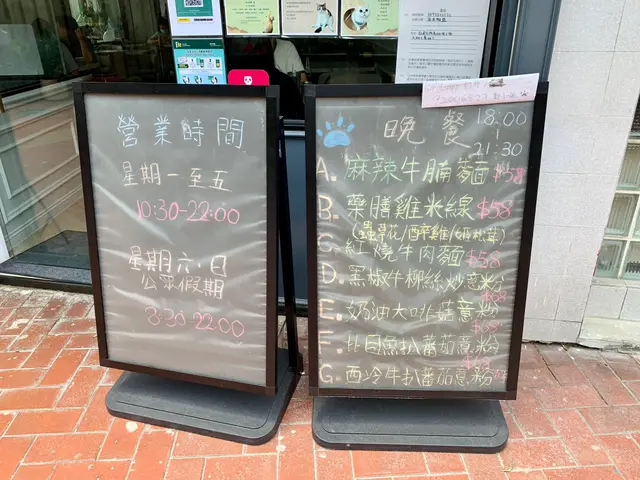 營業時間
星期一至五
10:30-22:00
星期六,日
公眾假期
8:30-22:00
晚餐
18:00
|
21:30
A. 麻辣牛腩麵 $58
B. 藥膳雞米線 $58
(蟲草花/醉雞/姬松茸)
C. 紅燒牛肉麵 $58
D. 黑椒牛柳絲炒意粉
$68
E. 奶油大啡菇意粉
$68
F. 比目魚扒蕃茄意粉
G. 西冷牛扒蕃茄意粉